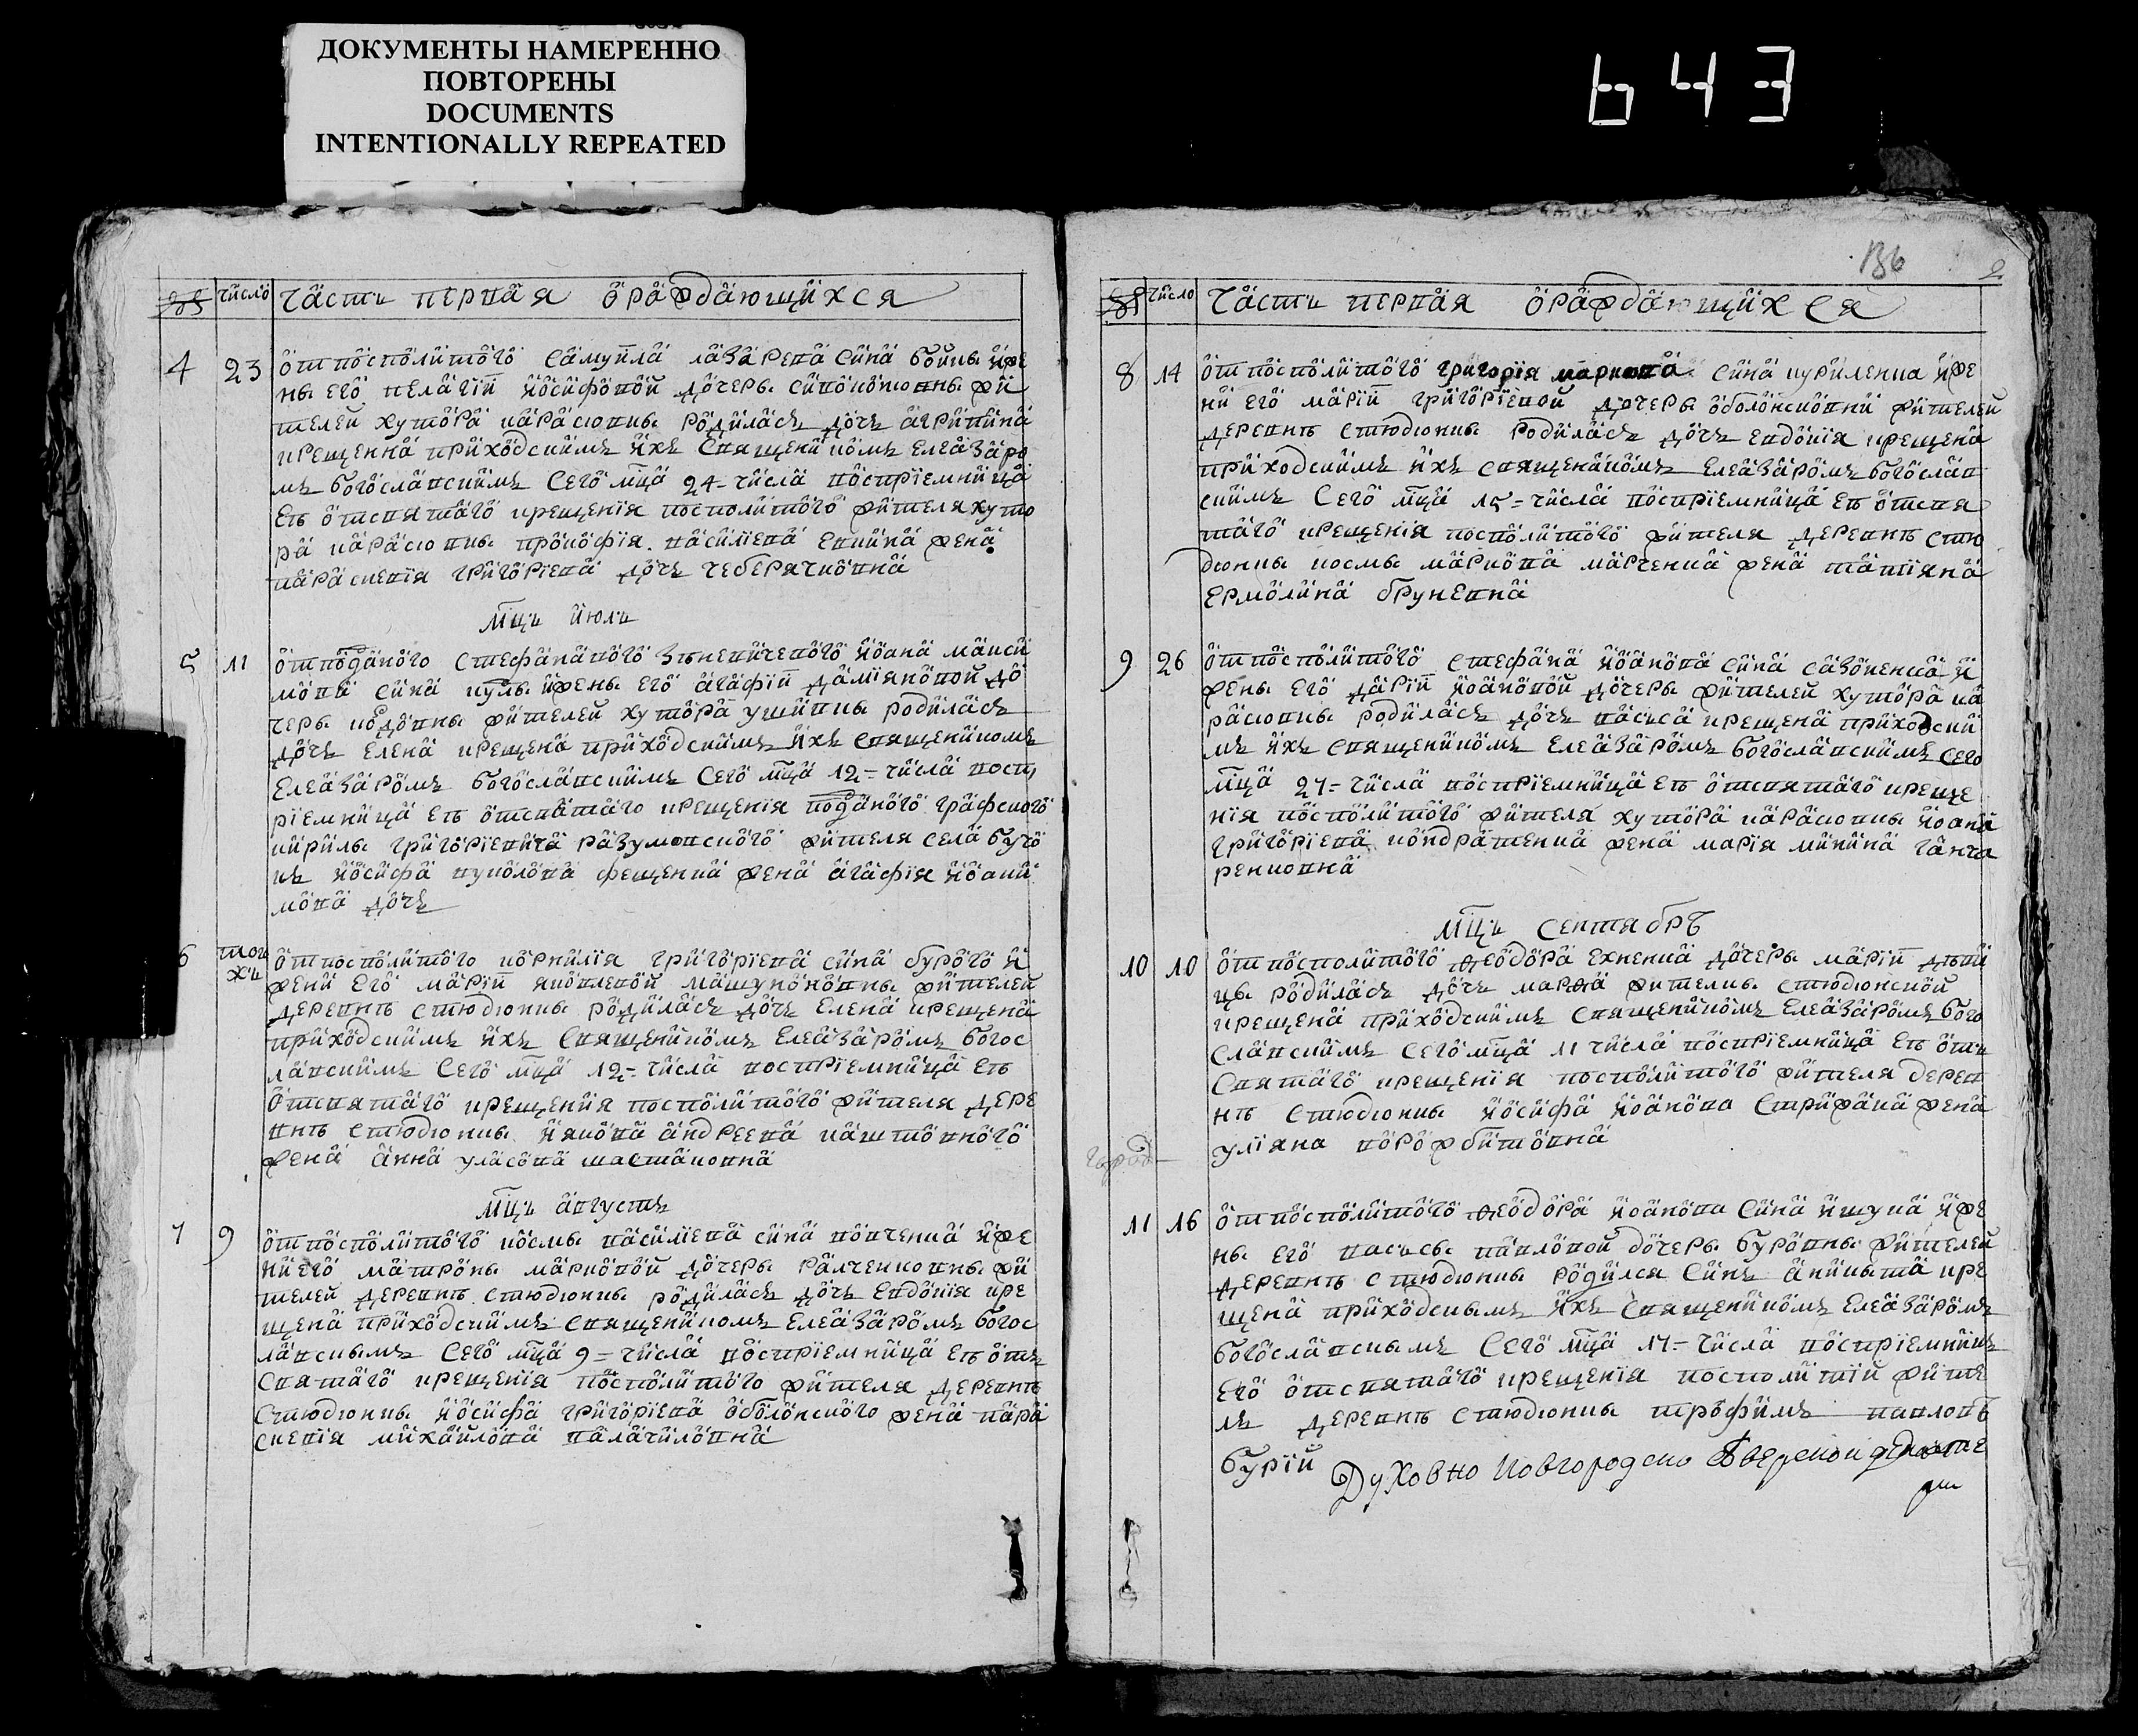 ДОКУМЕНТЫ НАМЕРЕННО
ПОВТОРЕНЫ
DOCUMENTS
INTENTIONALLY REPEATED
643
число часть первая ораждающихся
4 23 от посполитого самуила лазарева сина бойка иже
ны его пелагїи иосифовой дочеры симоновны жи
телей хутора карасювкы родилась дочь агрипина
крещенна приходскимъ ихъ священикомъ елеазаро
мъ богославскимъ сего мца 24 числа воспрїемница
ев отсвятаго крещенїя посполитого жителя хуто
ра карасювкы прокофїя василїева жена
параскевїя григорїева дочь чеберячковна
мцъ июль
5 11 от подданого стефанавого иоана макси
мова сина куль ижены его агафїи дамїяновой до
черы жителей хутора ушивкы родилась
дочь елена крещена приходскимъ ихъ священикомъ
елеазаромъ богославскимъ сего мца 12 числа восп
рїемница ев отсвятаго крещенїя подданого графского
кирилы григорїевича разумовского жителя села
иосифа фещенка жена агафїя иоаки
мова дочь
6 того жъ от посполитого корнилїя григорїева сина бурого и
жени его марїи яковлевой машуконовны жителей
деревнъ стюдюнкы родилась дочь елена крещена
приходскимъ ихъ священикомъ елеазаромъ богос
лавскимъ сего мца 12 числа воспрїемница ев
отсвятаго крещения посполитого жителя дере
внъ стюдюнкы иякова андреева каштовного
жена анна уласова шастаковна
мцъ августъ
7 9 от посполитого космы василїева сина вовченка иже
ни его матроны марковой дочеры ралченковны жи
телей деревнъ стюдюнкы родилась дочь евдокїя кре
щена приходскимъ священикомъ елеазаромъ богос
лавскымъ сего мца 9 числа воспрїемница ев отъ
святаго крещенїя посполитого жителя деревнъ
стюдюнкы иосифа григорїева оболонского жена пара
скевїя михайлова палачиловна
136
2
число часть первая ораждающихся
8 14 от посполитого григорїя маркова сина куриленка иже
ни его марїи григорїевой дочеры оболонсковни жителей
деревнъ стюдюнкы родилась дочь евдокїя крещена
приходскимъ ихъ священикомъ елеазаромъ богослав
скимъ сего мца 15 числа воспрїемница ев отсвя
таго крещенїя посполитого жителя деревнъ стю
дюнкы космы маркова марченка жена татїяна
ермолина бруневна
9 26 от посполитого стефана иоанова сина сазоненка и
жены его дарїи иоановой дочеры жителей хутора ка
расювкы родилась дочь васъса крещена приходски
мъ ихъ священикомъ елеазаромъ богославскимъ сего
мца 27 числа воспрїемница ев отсвятаго креще
нїя посполитого жителя хутора карасювкы иоана
григорїева кондратенка жена марїя минина ганча
ренковна
мцъ септябръ
10 10 от посполитого феодора ехненка дочеры марїи дъви
цы родилась дочь марфа жителкы стюдюнской
крещена приходскимъ священикомъ елеазаромъ бого
славскимъ сего мца 11 числа воспрїемница ев отъ
святаго крещенїя посполитого жителя дерев
нъ стюдюнкы иосифа иоанова стрижака жена
улїяна ворожбитовна
11 16 от посполитого феодора иоанова сина ищука иже
ны его васъсы павловой дочеры буровны жителей
деревнъ стюдюнкы родился синъ аникыта кре
щена приходскымъ ихъ священикомъ елеазаромъ
богославскымъ сего мца 17 числа воспрїемникъ
его отсвятаго крещенїя посполитїй жите
лъ деревнъ стюдюнкы трофимъ павловъ
бурїй Духовно Новгородско